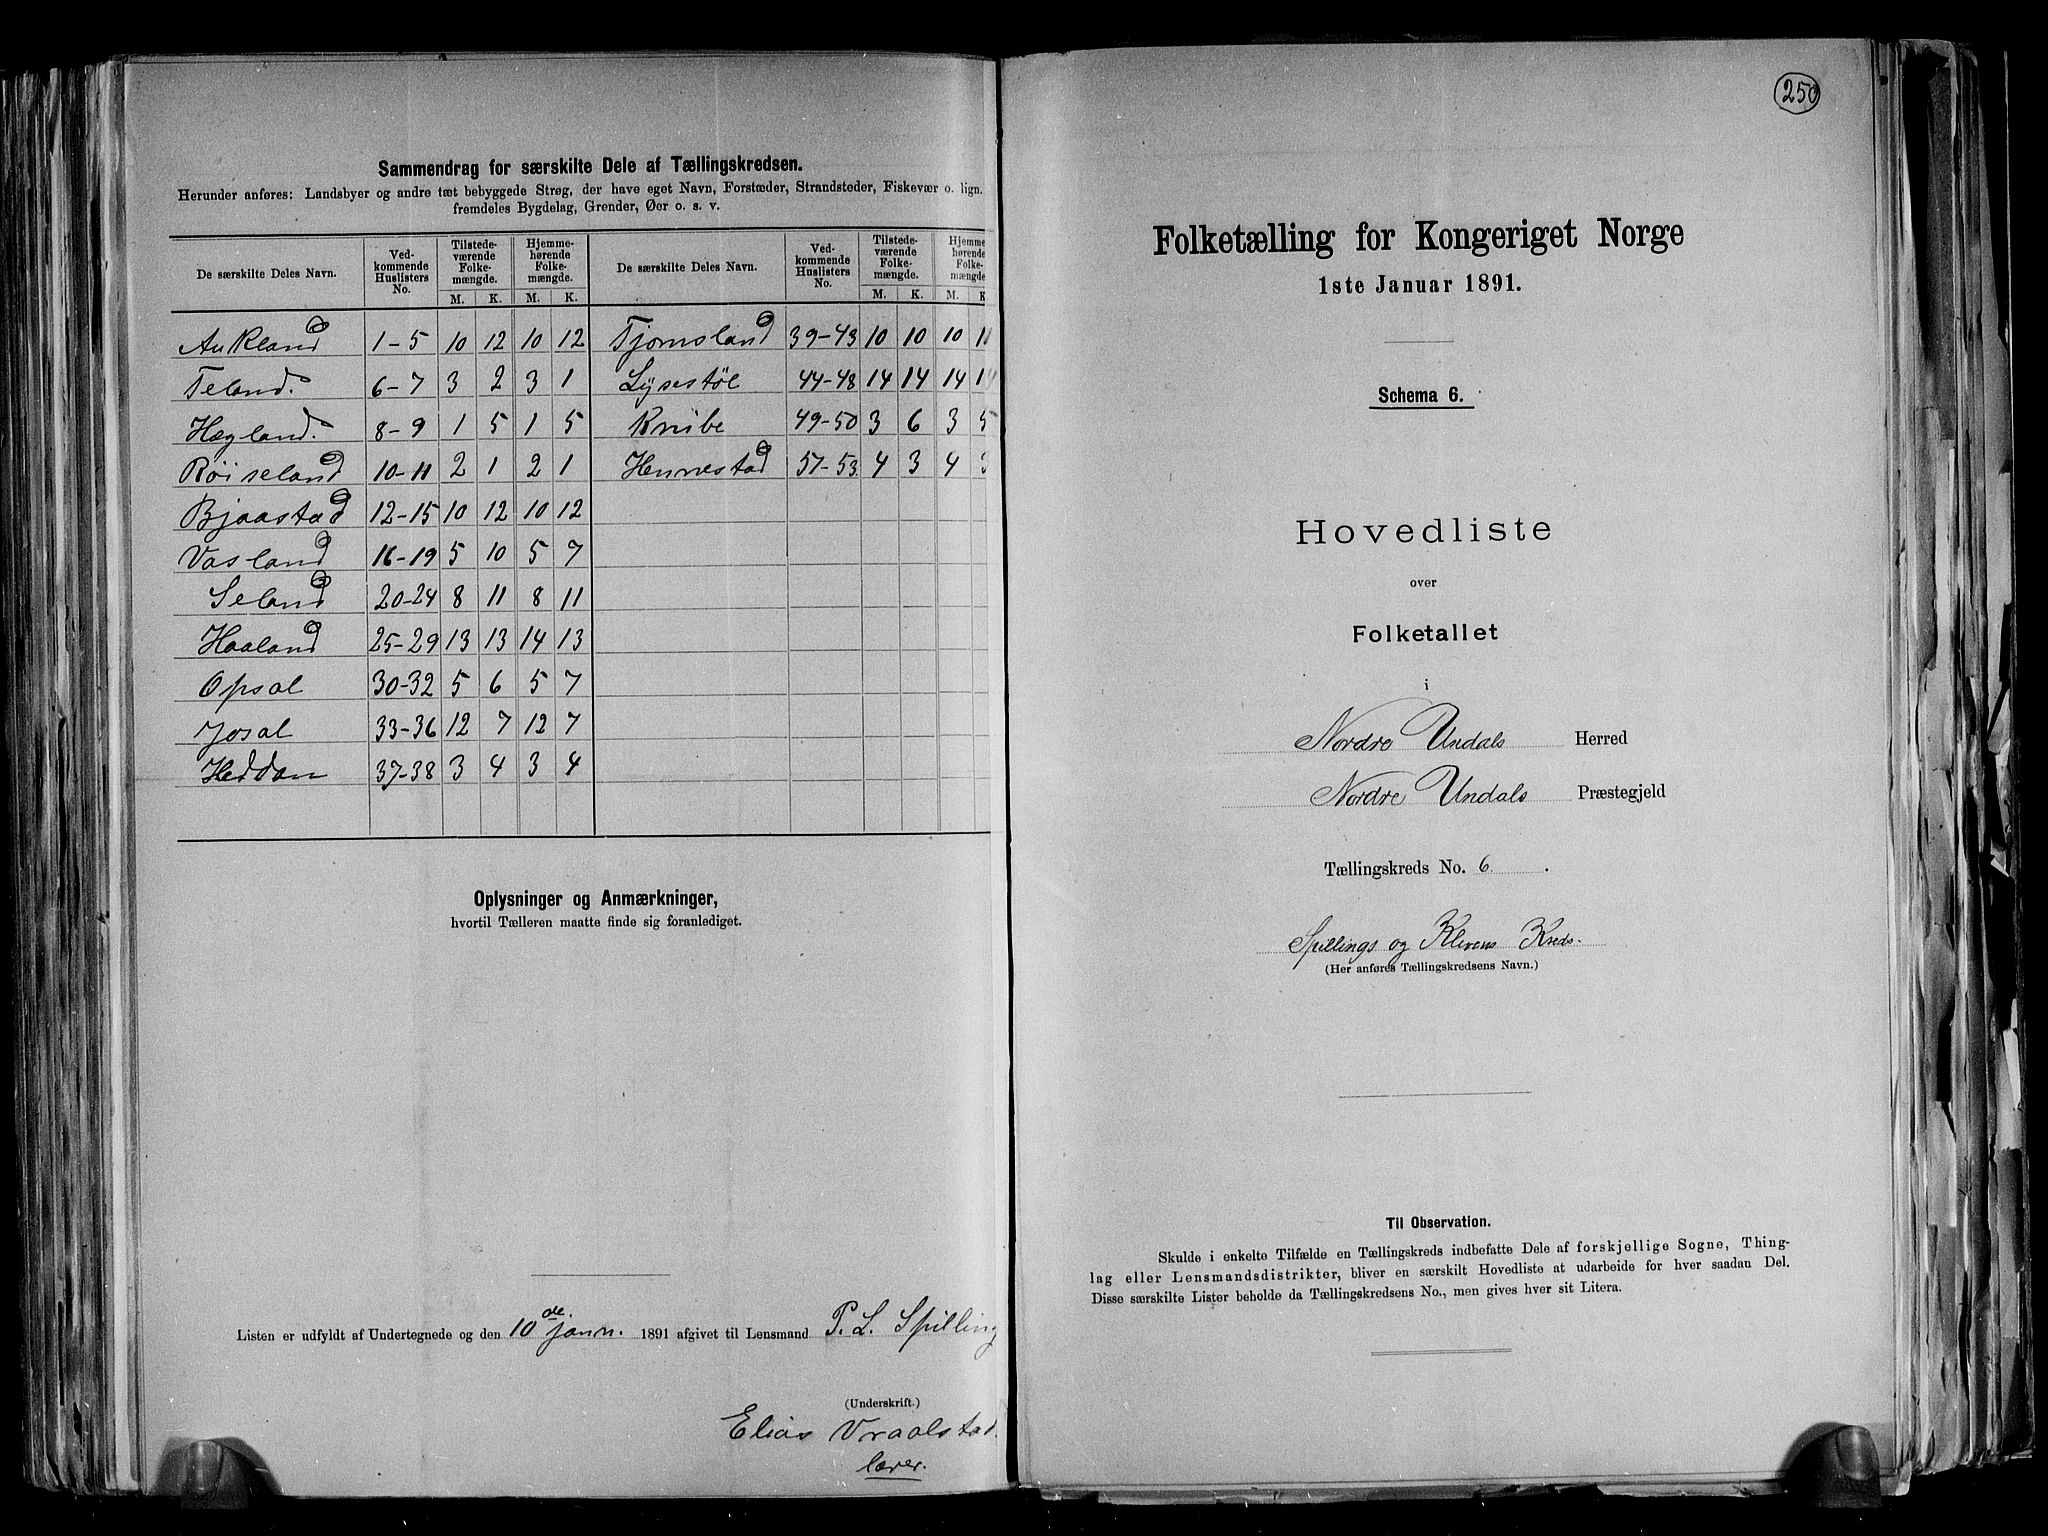 Sammendrag for særskilte Dele af Tællingskredsen.
Herunder anføres: Landsbyer og andre tæt bebyggede Strøg, der have eget Navn, Forstæder, Strandsteder, Fiskevær o. lign.
fremdeles Bygdelag, Grender, Øer o. s. v.
De særskilte Deles Navn. Vedkommende Huslisters No. Tilstedeværende Folkemængde. M. K. Hjemmehørende Folkemængde. M. K.
Aukland 1-5 10 12 10 12
Teland. 6-7 3 2 3 1
Hægland. 8-9 1 5 1 5
Røiseland 10-11 2 1 2 1
Bjaastad 12-15 10 12 10 12
Vasland 16-19 5 10 5 7
Seland 20-24 8 11 8 11
Haaland 25-29 13 13 14 13
Opsal 30-32 5 6 5 7
Josal 33-36 12 7 12 7
Heddan 37-38 3 4 3 4
De særskilte Deles Navn. Vedkommende Huslisters No. Tilstedeværende Folkemængde. M. K. Hjemmehørende Folkemængde. M. K
Tjomsland 39-43 10 10 10
Lysestøl 44-48 14 14 14 14
Knibe 49-50 3 6 3 5
Hennestad 51-53 4 3 4
Oplysninger og Anmærkninger,
hvortil Tælleren maatte finde sig foranlediget.
Listen er udfyldt af Undertegnede og den 10de jann. 1891 afgivet til Lensmand P. L. Spilling
(Underskrift.)
Elias Vraalstad.
lærer.
250
Folketælling for Kongeriget Norge
1ste Januar 1891.
Schema 6.
Hovedliste
over
Folketallet
i
Nordre Undals Herred
Nordre Undals Præstegjeld
Tællingskreds No. 6.
Spillings og Klevens Kreds.
(Her anføres Tællingskredsens Navn.)
Til Observation.
Skulde i enkelte Tilfælde en Tællingskreds indbefatte Dele af forskjellige Sogne, Thing-
lag eller Lensmandsdistrikter, bliver en særskilt Hovedliste at udarbeide for hver saadan Del.
Disse særskilte Lister beholde da Tællingskredsens No., men gives hver sit Litera.